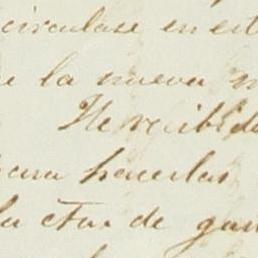 circulase en est
e la nueva m
He recibido
para hacerlas
la ctas de gan